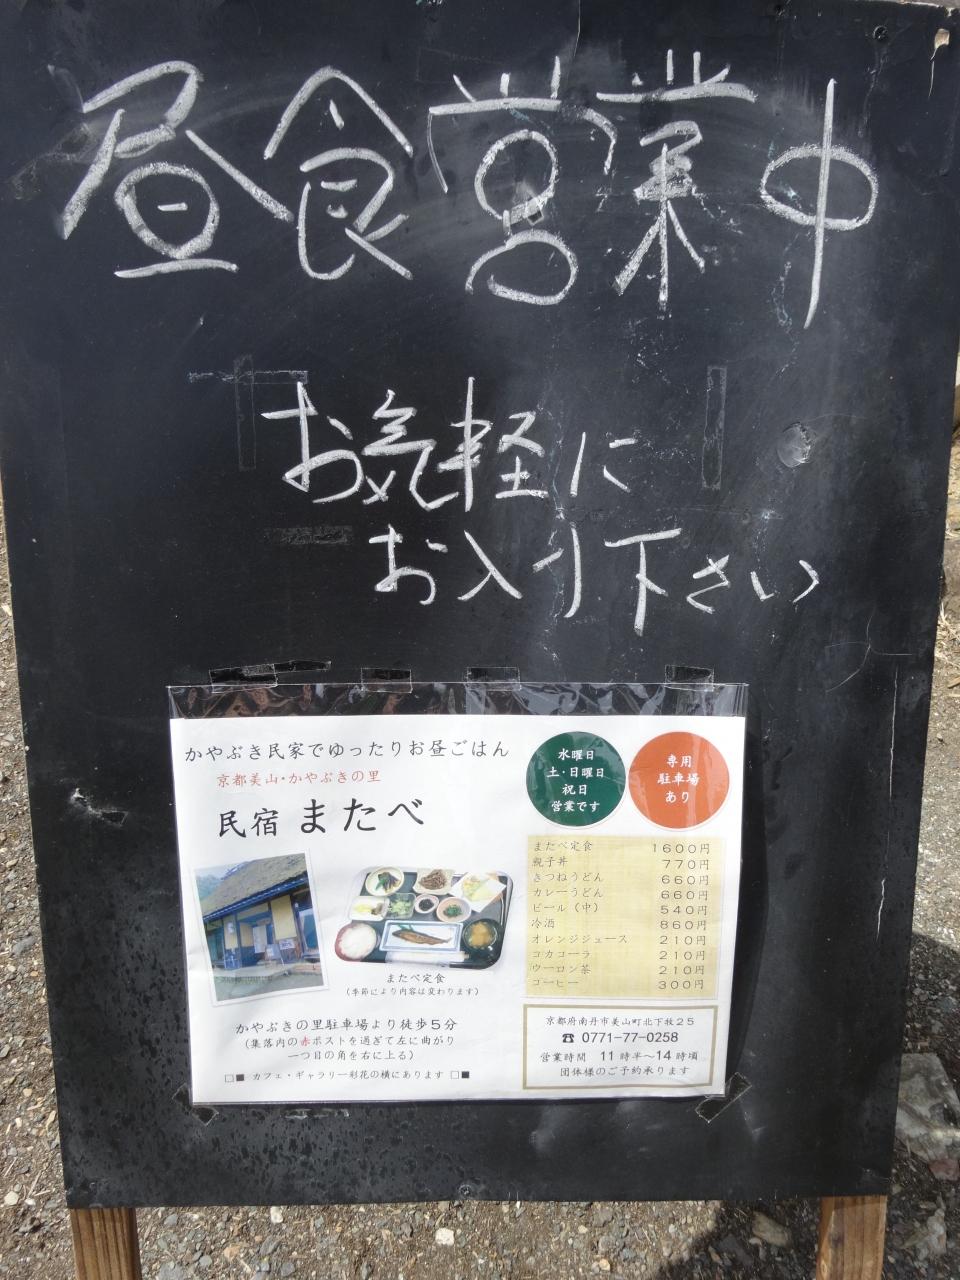 昼食営業中
お気軽に
お入り下さい
かやぶき民家でゆったりお昼ごはん
京都美山・かやぶきの里
民宿 またべ
水曜日
土・日曜日
祝日
営業です
専用
駐車場
あり
またべ定食 1600円
親子丼 770円
きつねうどん 660円
カレーうどん 660円
ビール（中） 540円
冷酒 860円
オレンジジュース 210円
コカコーラ 210円
ウーロン茶 210円
コーヒー 300円
またべ定食
（季節により内容は変わります）
かやぶきの里駐車場より徒歩5分
（集落内の赤ポストを過ぎて左に曲がり
一つ目の角を右に上る）
□■ カフェ・ギャラリー彩花の横にあります □■
京都府南丹市美山町北下牧25
☎ 0771-77-0258
営業時間 11時半～14時頃
団体様のご予約承ります